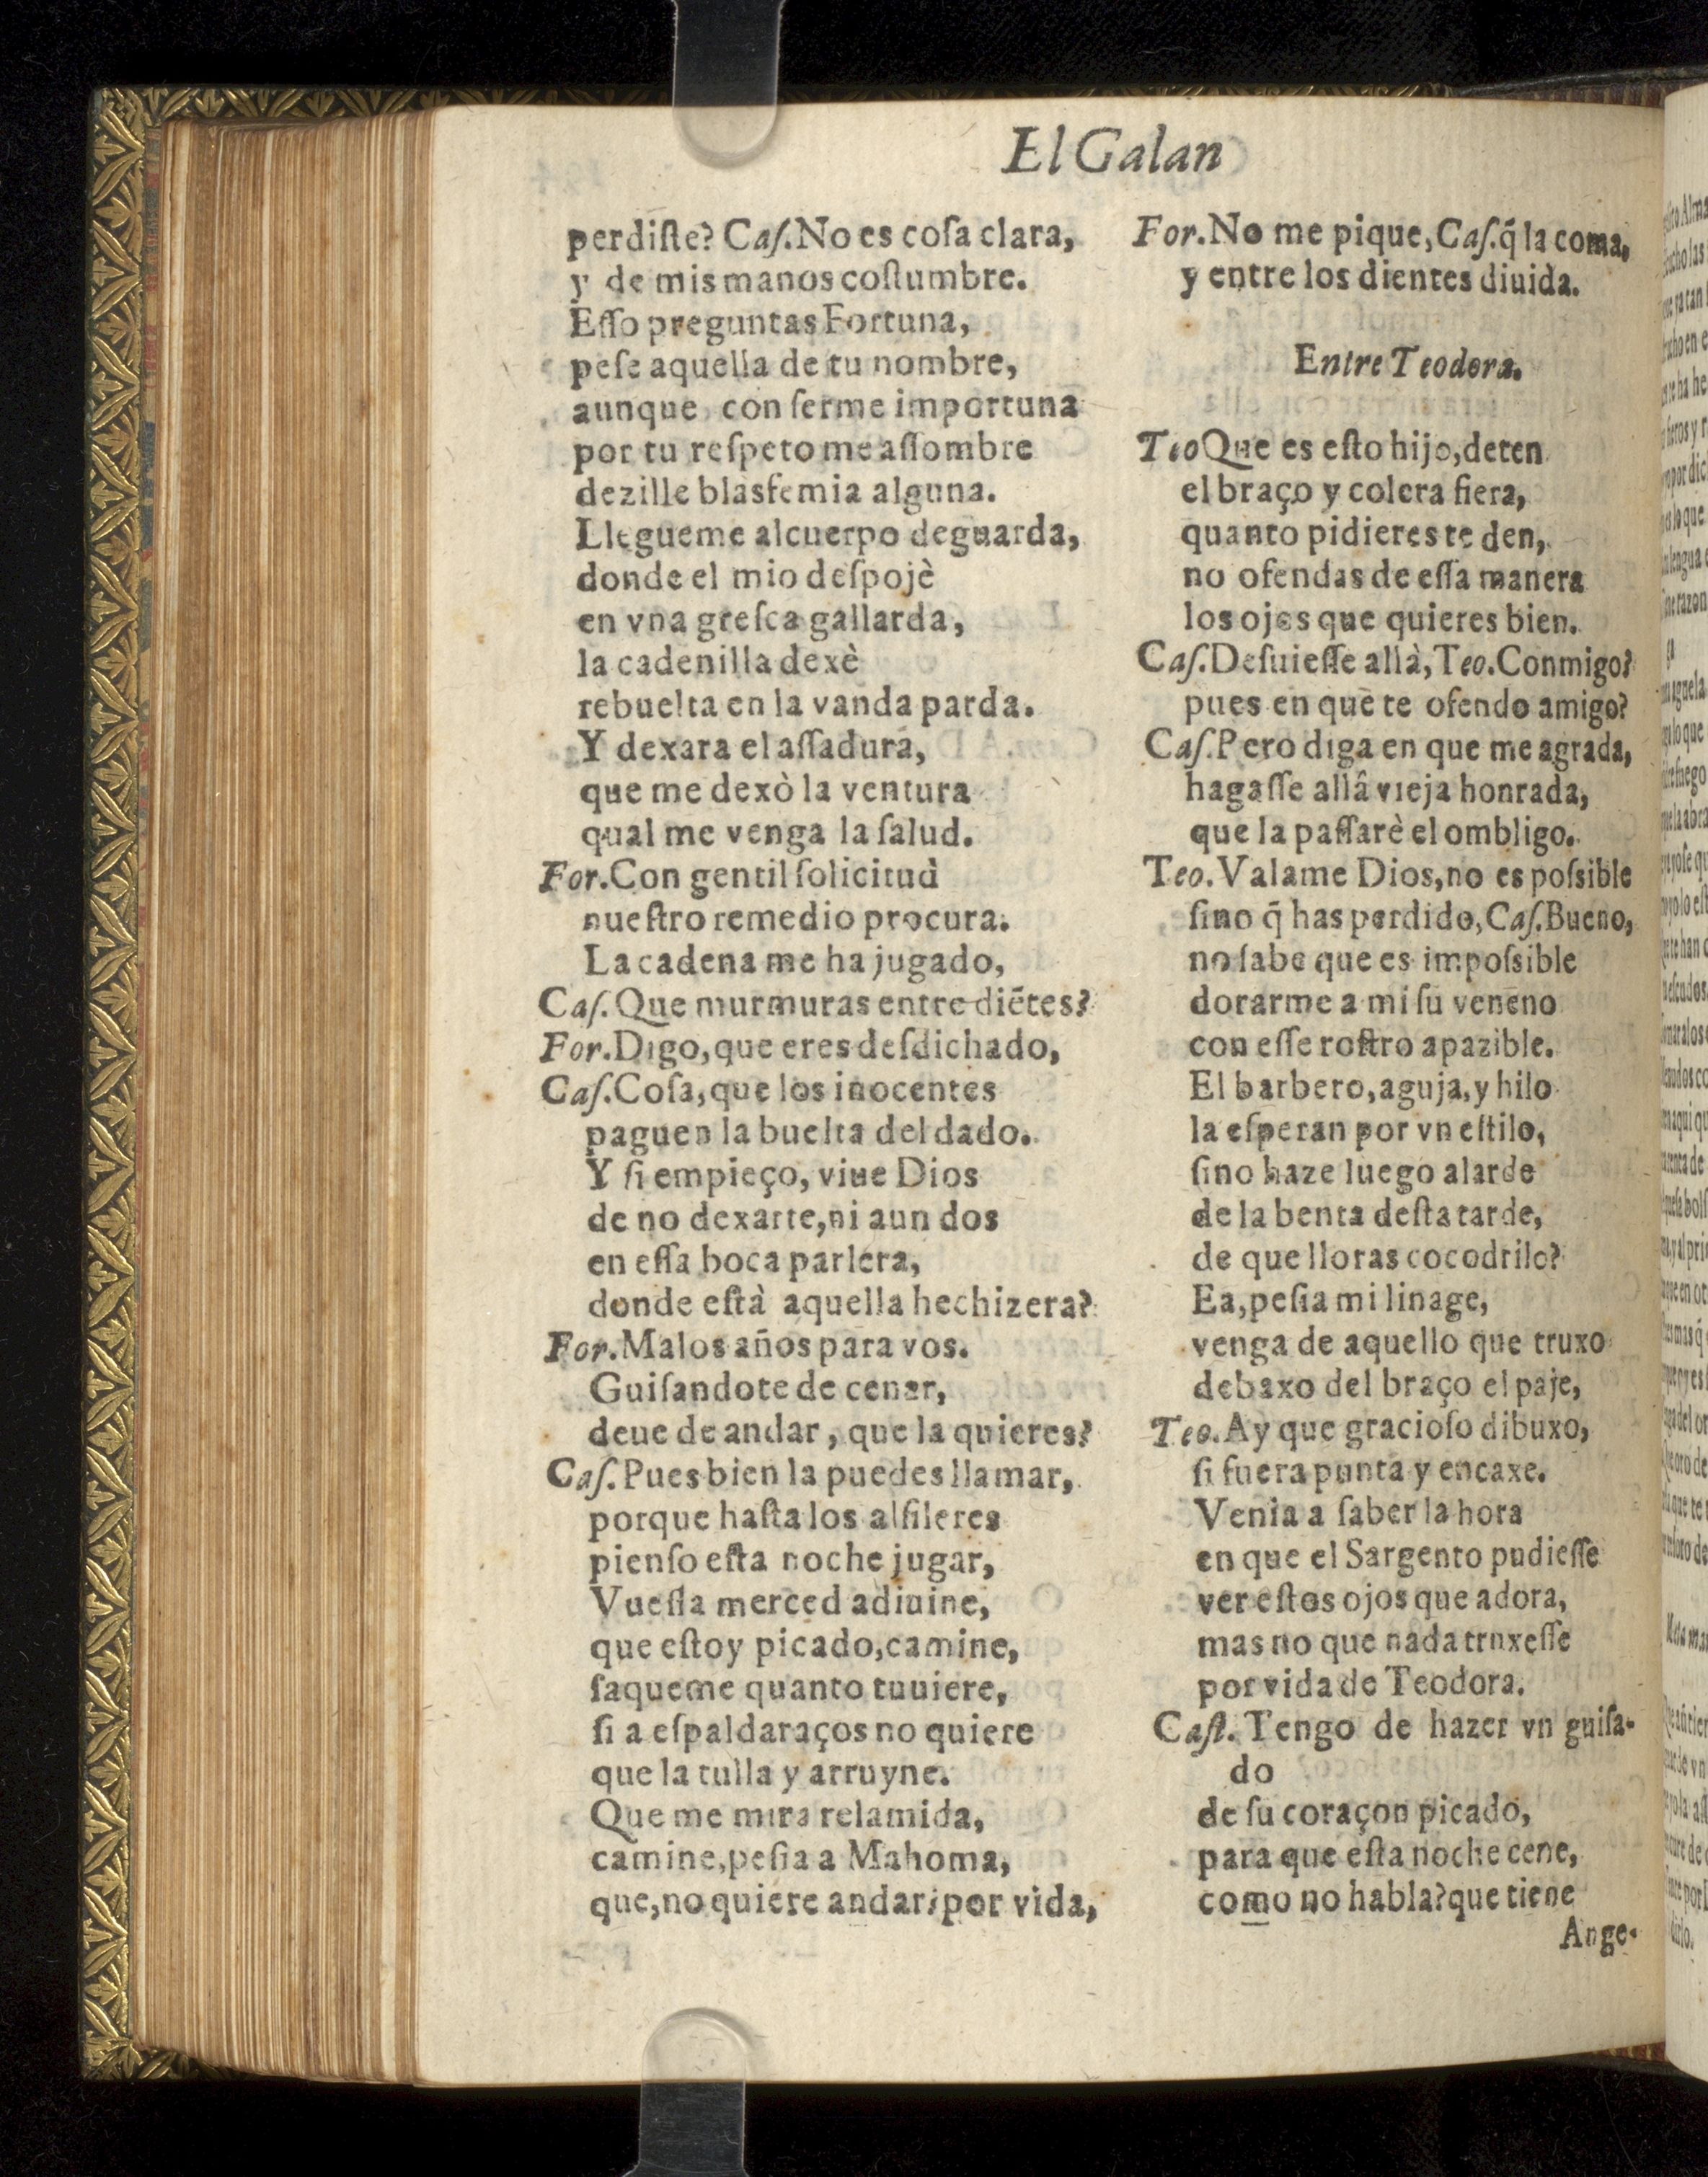 El Galan
perdiſte? Caſ. No es coſa clara,
y de mis manos coſtumbre.
Eſſo preguntas Fortuna,
peſe aquella de tu nombre,
aunque con ſerme importuna
por tu reſpeto me aſſombre
dezille blasfemia alguna.
Llegueme al cuerpo de guarda,
donde el mio deſpojè
en vna greſca gallarda,
la cadenilla dexè
rebuelta en la vanda parda.
Y dexara el aſſadura,
que me dexò la ventura
qual me venga la ſalud.
For. Con gentil ſolicitud
nueſtro remedio procura.
La cadena me ha jugado,
Caſ. Que murmuras entre diẽtes?
For. Digo, que eres deſdichado,
Caſ. Coſa, que los inocentes
paguen la buelta del dado.
Y ſi empieço, viue Dios
de no dexarte, ni aun dos
en eſſa boca parlera,
donde eſtà aquella hechizera?
For. Malos años para vos.
Guiſandote de cenar,
deue de andar, que la quieres?
Caſ. Pues bien la puedes llamar,
porque haſta los alfileres
pienſo eſta noche jugar,
Vueſſa merced adiuine,
que eſtoy picado, camine,
ſaqueme quanto tuuiere,
ſi a eſpaldaraços no quiere
que la tulla y arruyne.
Que me mira relamida,
camine, peſia a Mahoma,
que, no quiere andar; por vida,
For. No me pique, Caſ. q̃ la coma,
y entre los dientes diuida.
Entre Teodora.
Teo Que es eſto hijo, deten
el braço y colera fiera,
quanto pidieres te den,
no ofendas de eſſa manera
los ojos que quieres bien.
Caſ. Deſuieſſe allà, Teo. Conmigo?
pues en què te ofendo amigo?
Caſ. Pero diga en que me agrada,
hagaſſe allâ vieja honrada,
que la paſſarè el ombligo.
Teo. Valame Dios, no es poſsible
ſino q̃ has perdido, Caſ. Bueno,
no ſabe que es impoſsible
dorarme a mi ſu veneno
con eſſe roſtro apazible.
El barbero, aguja, y hilo
la eſperan por vn eſtilo,
ſino haze luego alarde
de la benta deſta tarde,
de que lloras cocodrilo?
Ea, peſia mi linage,
venga de aquello que truxo
debaxo del braço el paje,
Teo. Ay que gracioſo dibuxo,
ſi fuera punta y encaxe.
Venia a ſaber la hora
en que el Sargento pudieſſe
ver eſtos ojos que adora,
mas no que nada truxeſſe
por vida de Teodora.
Caſt. Tengo de hazer vn guiſa-
do
de ſu coraçon picado,
para que eſta noche cene,
como no habla? que tiene
Ange-